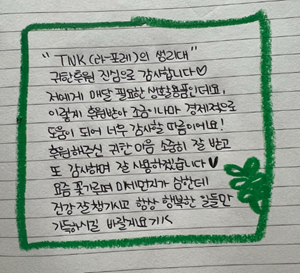 "TNK (라-포레)의 생리대"
귀한후원 진심으로 감사합니다♡
저에게 매달 필요한 생활용품인데요,
이렇게 후원받아 조금이나마 경제적으로
도움이 되어 너무 감사할 따름이에요!
후원해주신 귀한 마음 소중히 잘 받고
또 감사하며 잘 사용하겠습니다♥
요즘 꽃가루며 미세먼지가 심한데
건강 잘 챙기시고 항상 행복한 일들만
가득하시길 바랄게요ㅎㅅ